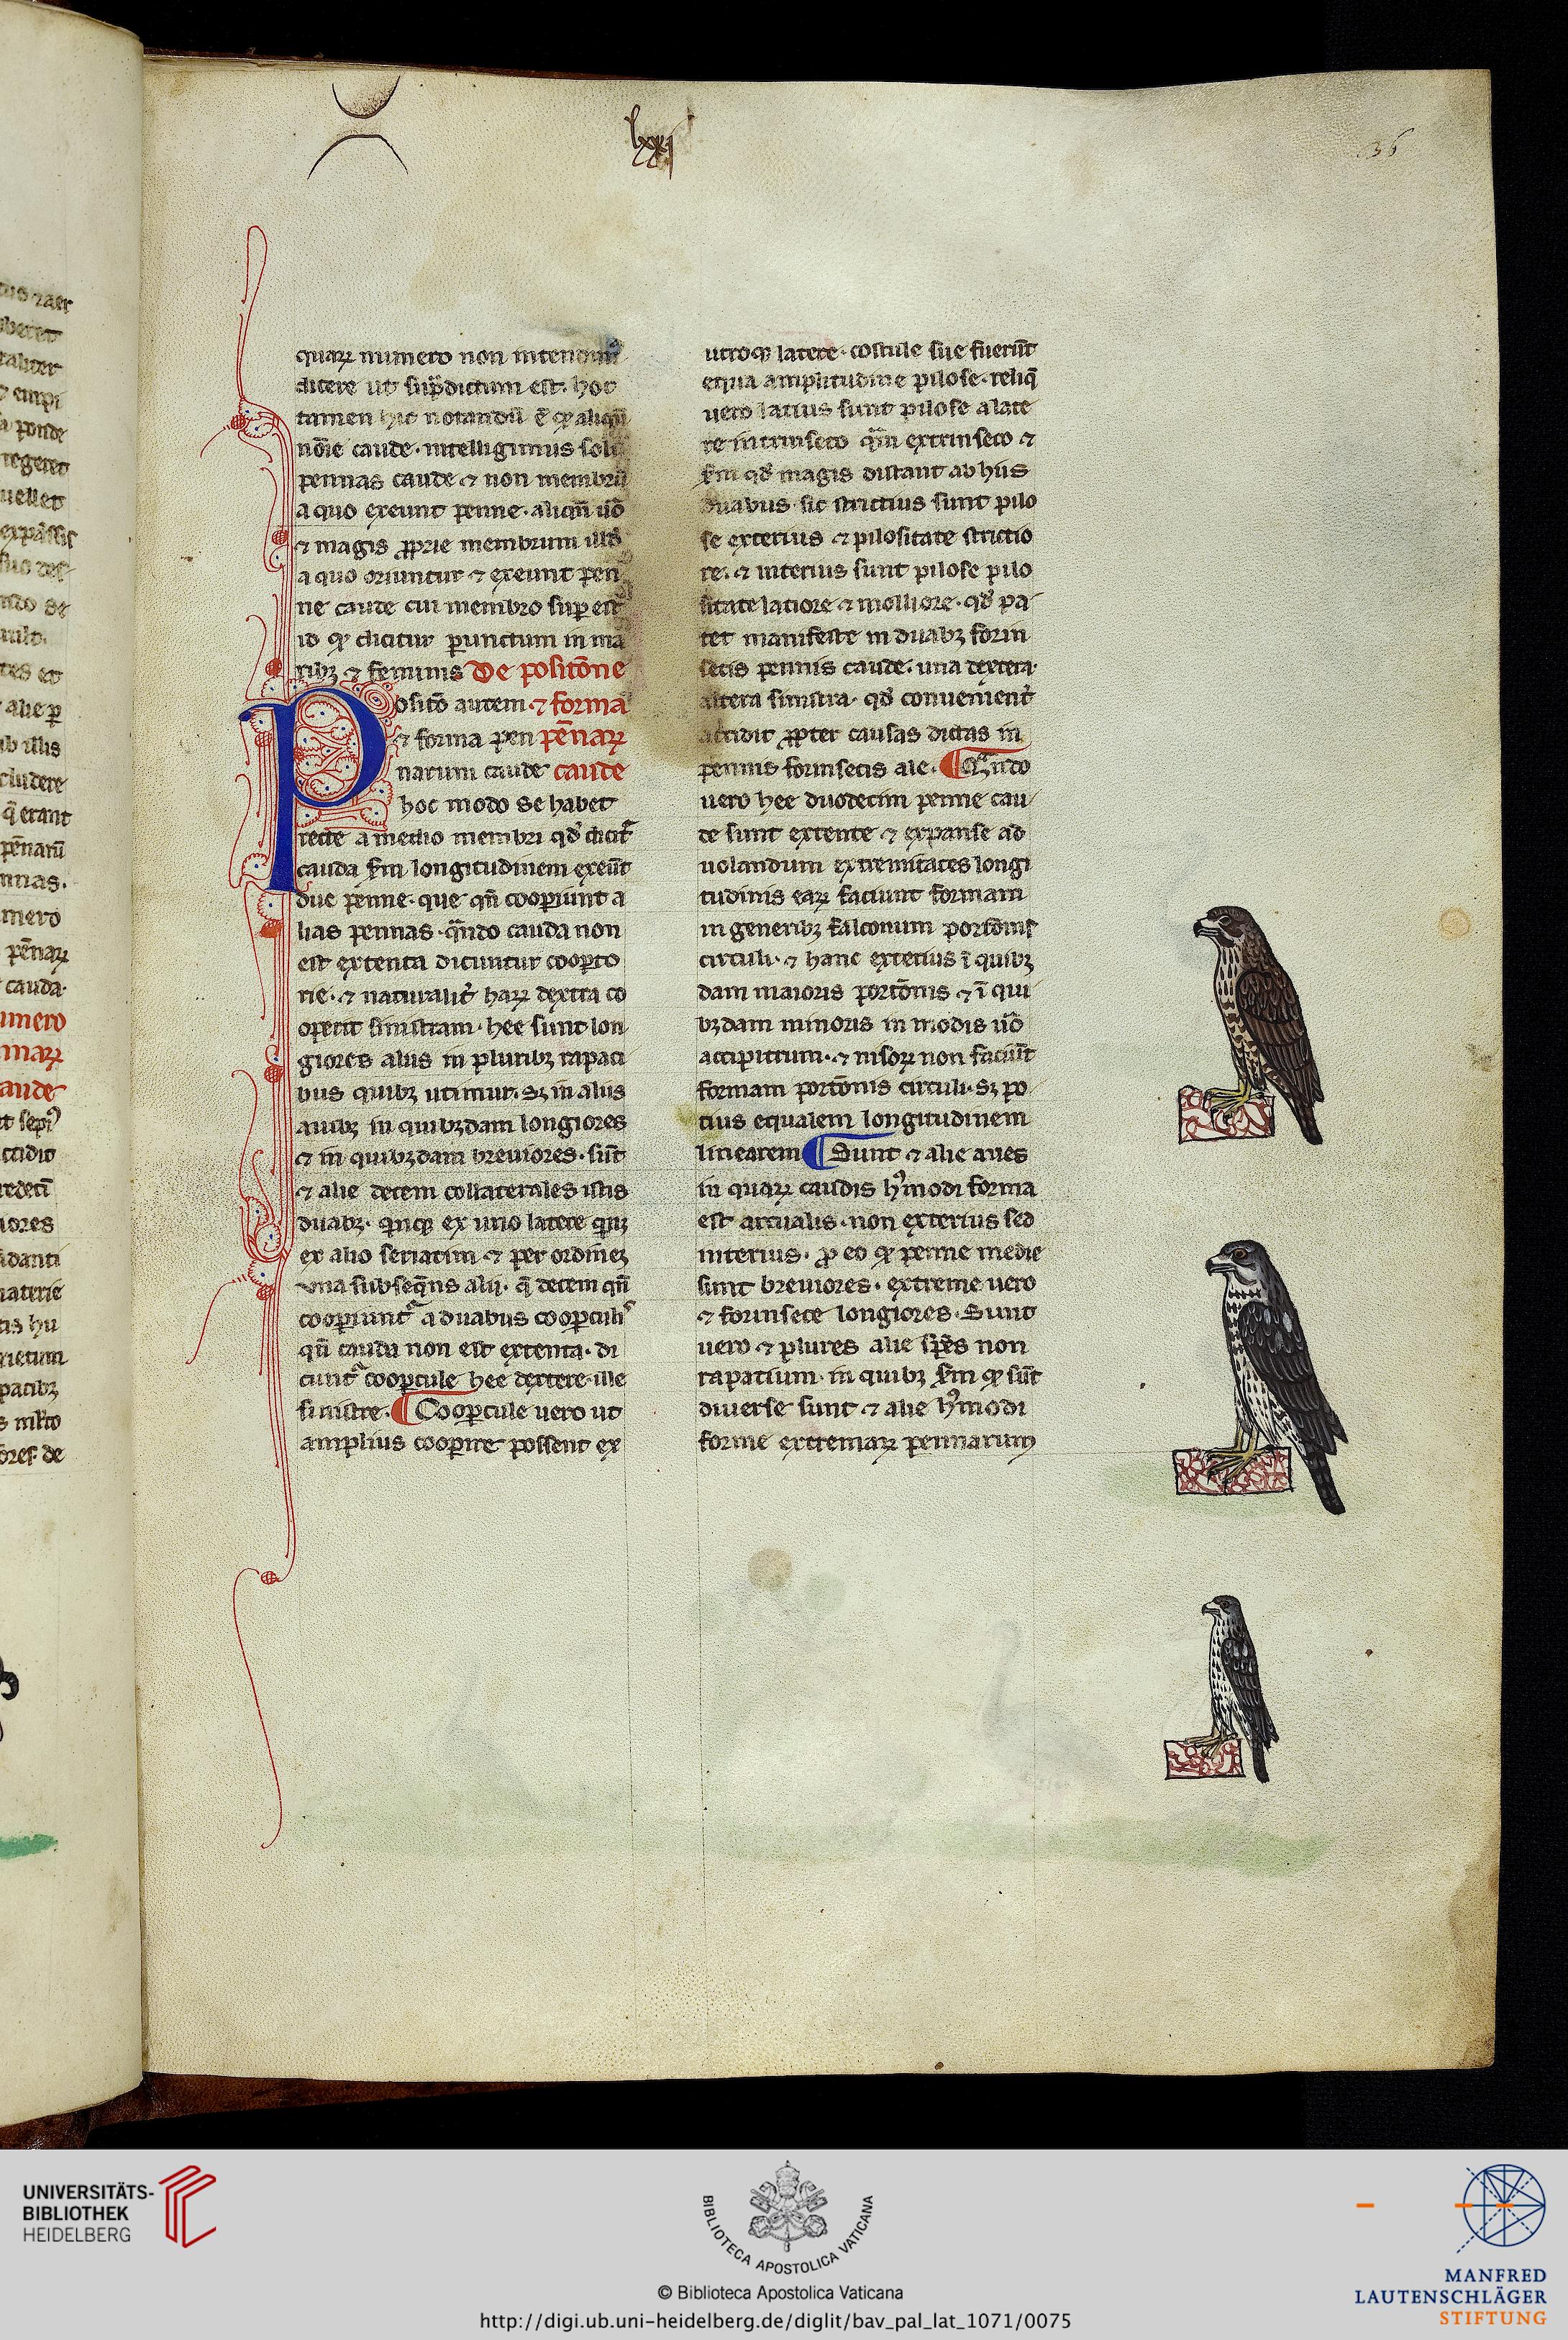 lxxi
36
quaꝝ numero non intendimꝰ
dicere ut sup̃dictum est. hoc
tamen hic notandũ ẽ ꝙ aliqñ
nõie caude. intelligimus solũ
pennas caude ⁊ non membrũ
a quo exeunt penne. aliqñ uõ
⁊ magis ꝓprie membrum illd̃
a quo oriuntur ⁊ exeunt pen
ne caude cui membro suꝑ est
id ꝙ dicitur ꝑunctum in ma
ribꝫ ⁊ feminis De positõne
Positõ autem ⁊ forma
⁊ forma pen pẽnaꝝ
narum caude caude
hoc modo se habet
recte a medio membri qd̃ dicit̃
cauda s̃m longitudinem exeũt
due penne. que qñ cooꝑiunt a
lias pennas. qñdo cauda non
est extenta dicuntur cooꝑto
rie. ⁊ naturalit̃ haꝝ dextra co
operit sinistram. hee sunt lon
giores aliis in pluribꝫ rapaci
bus quibꝫ utimur. sꝫ in aliis
auibꝫ in quibꝫdam longiores
⁊ in quibꝫdam breuiores. sũt
⁊ alie decem collaterales istis
duabꝫ. qinqꝫ ex uno latere qinqꝫ
ex alio seriatim ⁊ per ordinem
una subseq̃ns alii. q̃ decem qñ
cooꝑiunt̃ a duabus cooꝑculis
qñ cauda non est extenta. di
cunt̃ cooꝑcule hee dextere. ille
sinistre. ¶ Cooꝑcule uero ut
amplius cooꝑire possent ex
utroqꝫ latere. costule sue fuerũt
equa amplitudine pilose. reliq̃
uero latius sunt pilose a late
re intrinseco q̃m extrinseco ⁊
s̃m qd̃ magis distant ab hiis
duabus. sic strictius sunt pilo
se exterius ⁊ pilositate strictio
re. ⁊ interius sunt pilose pilo
sitate latiore ⁊ molliore. qd̃ pa
tet manifeste in duabꝫ forin
secis pennis caude. una dextera.
altera sinistra. qd̃ conuenient̃
accidit ꝓpter causas dictas in
pennis forinsecis ale. ¶ Qũdo
uero hee duodecim penne cau
de sunt extente ⁊ expanse ad
uolandum extremitates longi
tudinis eaꝝ faciunt formam
in generibꝫ falconum portiõnis
circuli. ⁊ hanc exterius ĩ quibꝫ
dam maioris portiõnis ⁊ ĩ qui
bꝫdam minoris in modis uõ
accipitrum. ⁊ nisoꝝ non faciũt
formam portiõnis circuli. sꝫ po
cius equalem longitudinem
linearem ¶ Sunt ⁊ alie aues
in quaꝝ caudis hꝰmodi forma
est arcualis. non exterius sed
interius. ꝓ eo ꝙ penne medie
sunt breuiores. extreme uero
⁊ forinsece longiores. Sunt
uero ⁊ plures alie sp̃es non
rapatium. in quibꝫ s̃m ꝙ sũt
diuerse sunt ⁊ alie hꝰmodi
forme extremaꝝ pennarum
UNIVERSITÄTS-
BIBLIOTHEK
HEIDELBERG
BIBLIOTECA APOSTOLICA VATICANA
© Biblioteca Apostolica Vaticana
http://digi.ub.uni-heidelberg.de/diglit/bav_pal_lat_1071/0075
MANFRED
LAUTENSCHLÄGER
STIFTUNG